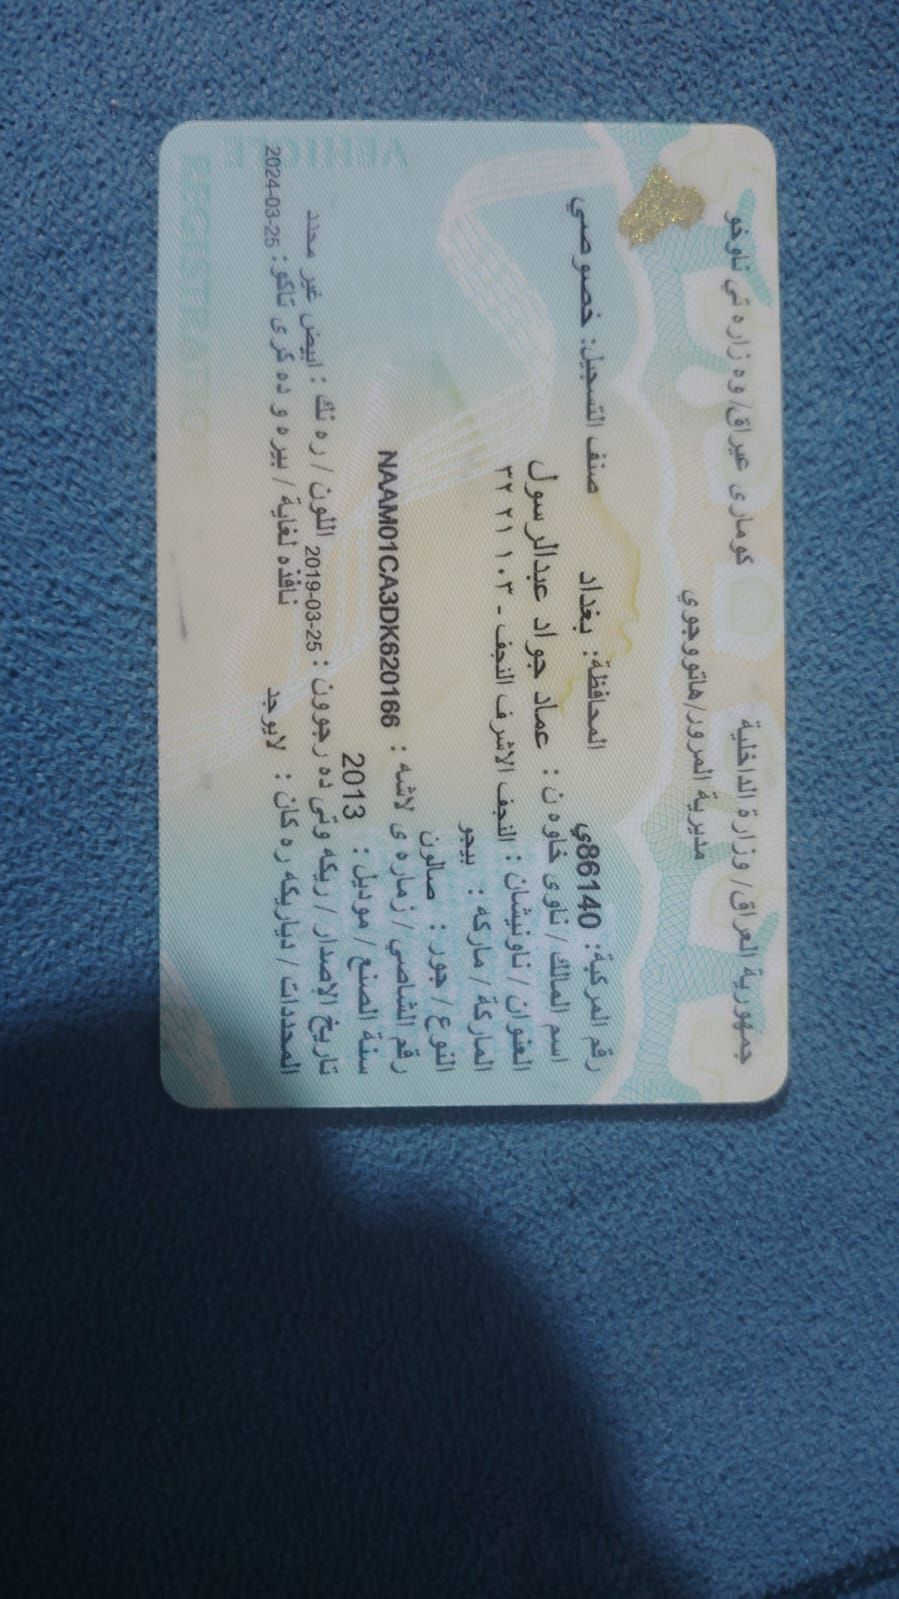 جمهورية العراق/ وزارة الداخلية كوماری عيراق/ وه زاره تي ناوخو
مديرية المرور/هاتووجوي
رقم المركبة: 86140ي المحافظة: بغداد صنف التسجيل: خصوصي
اسم المالك / ناوی خاوه ن : عماد جواد عبدالرسول
العنوان / ناونيشان : النجف الاشرف النجف - ١٠٣ ٢١ ٣٢
الماركة / ماركه : بيجو
النوع / جور : صالون
رقم الشاصي / زماره ی لاشه : NAAM01CA3DK620166
سنة الصنع / موديل : 2013
تاريخ الاصدار / ريكه وتی ده رجوون : 2019-03-25 اللون / ره نك : ابيض غير محدد
المحددات / دياريكه ره كان : لايوجد نافذه لغاية / بيره و ده كری تاكو : 2024-03-25
VEHICLE
REGISTRATIO